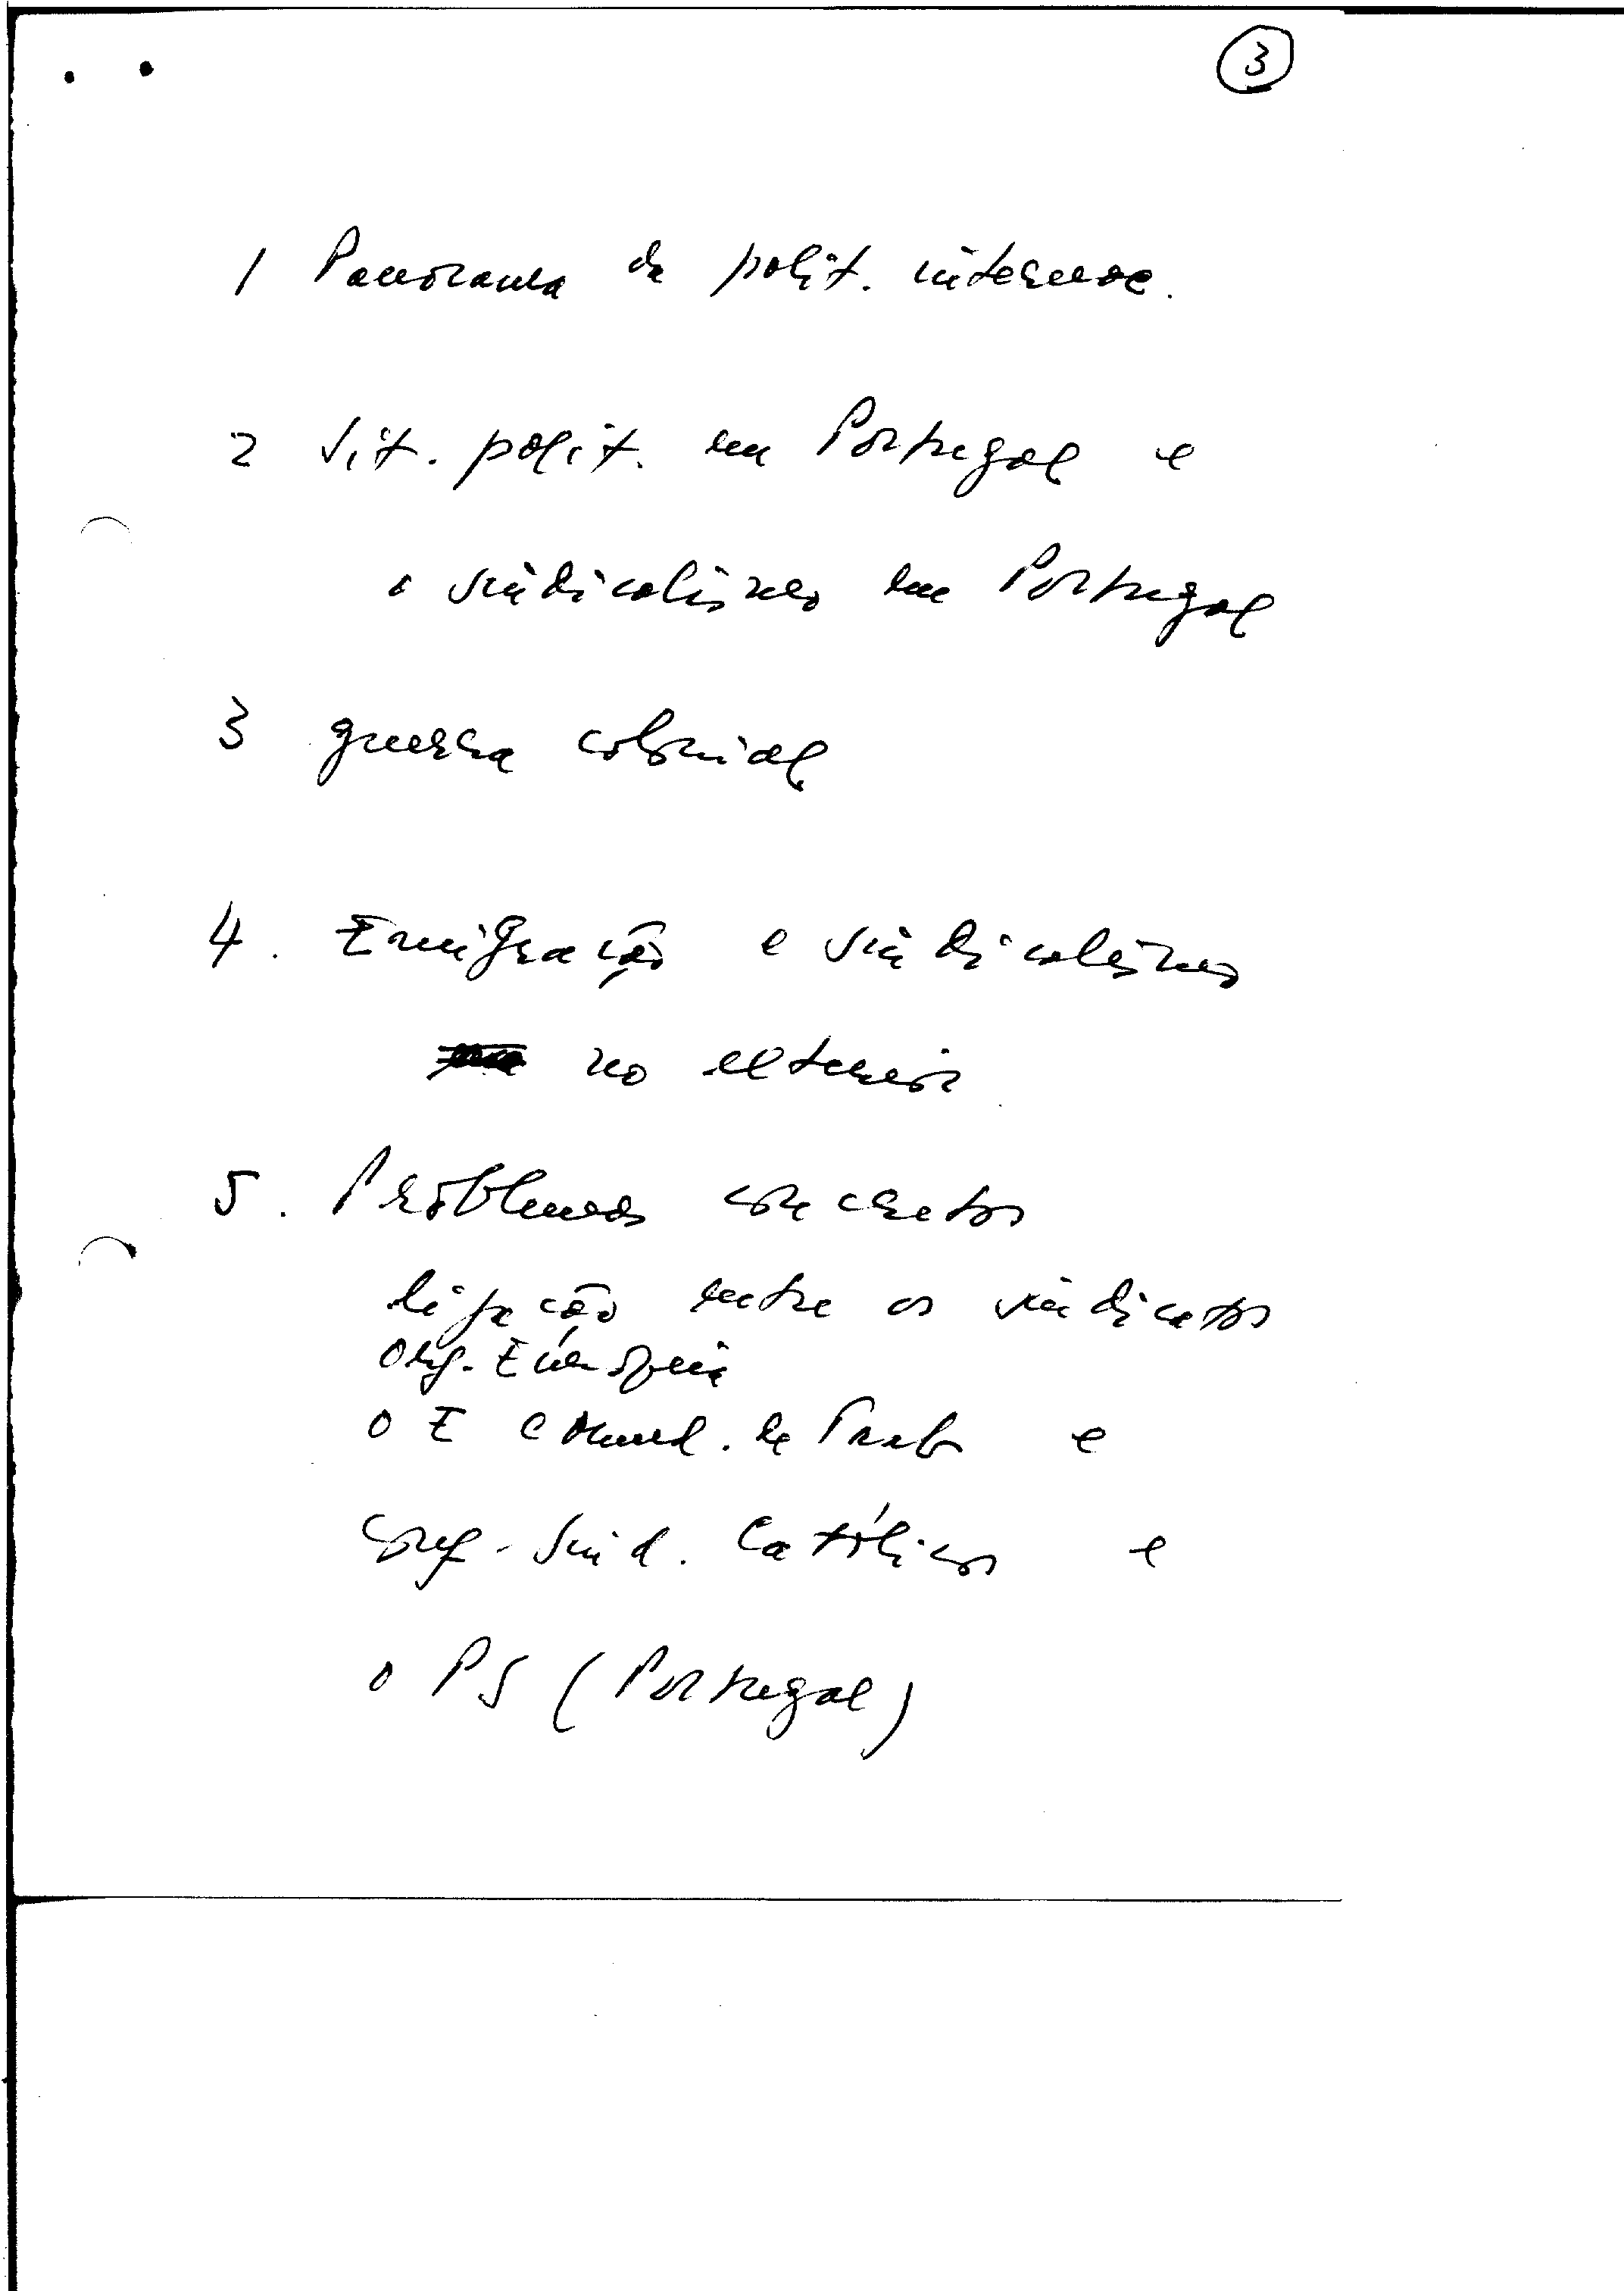 3
1 Panorama da polit. interna.
2 Sit. polit. em Portugal e
o sindicalismo em Portugal
3 guerra colonial
4. Emigração e sindicalismo
no exterior
5. Problemas concretos
ligação entre os sindicatos
Org. Europeia
o E C Mund. de Trab e
Conf. Sind. Católicos e
o PS (Portugal)